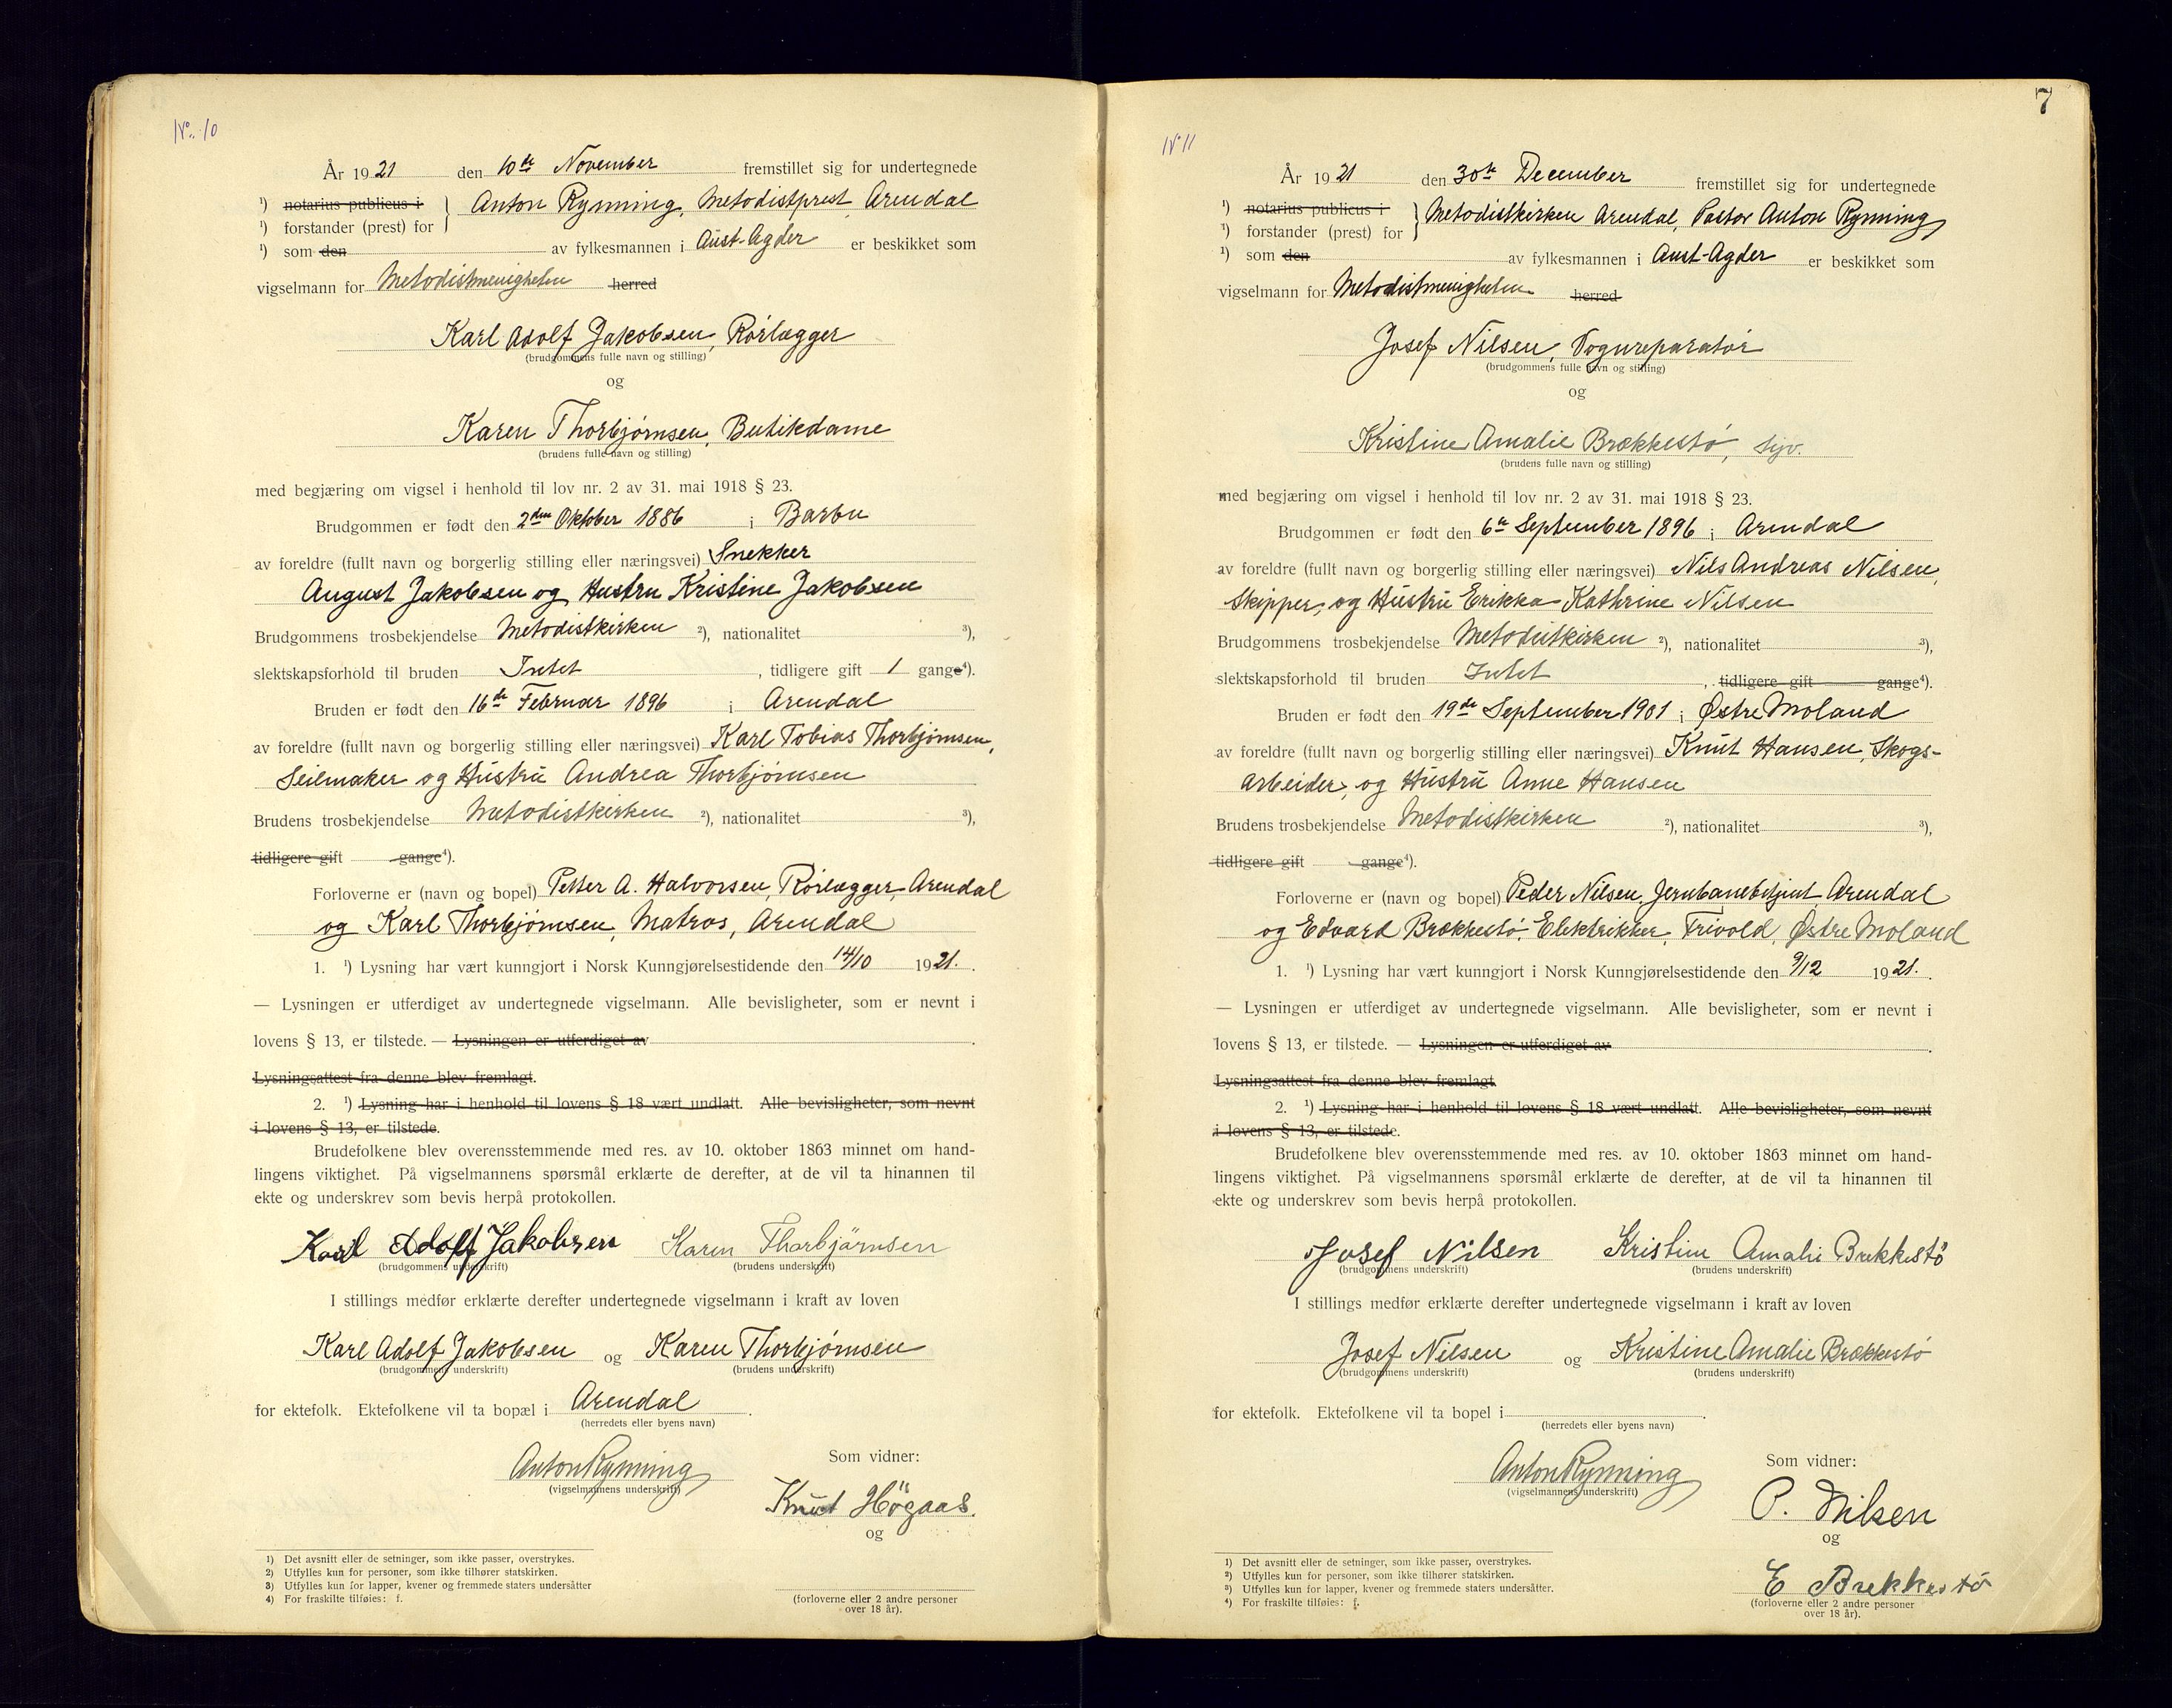 No. 10
År 1921 den 10de November fremstillet sig for undertegnede
¹) notarius publicus i } Anton Rynning, Metodistprest, Arendal
¹) forstander (prest) for
¹) som den av fylkesmannen i Aust-Agder er beskikket som
vigselmann for Metodistmenigheten herred
Karl Adolf Jakobsen, Rørlægger
(brudgommens fulle navn og stilling)
og
Karen Thorbjørnsen, Butikdame
(brudens fulle navn og stilling)
med begjæring om vigsel i henhold til lov nr. 2 av 31. mai 1918 § 23.
Brudgommen er født den 2den Oktober 1886 i Barbu
av foreldre (fullt navn og borgerlig stilling eller næringsvei) Snekker
August Jakobsen og Hustru Kristine Jakobsen
Brudgommens trosbekjendelse Metodistkirken ²), nationalitet ³),
slektskapsforhold til bruden Intet , tidligere gift 1 gange⁴).
Bruden er født den 16de Februar 1896 i Arendal
av foreldre (fullt navn og borgerlig stilling eller næringsvei) Karl Tobias Thorbjørnsen,
Seilmaker og Hustru Andrea Thorbjørnsen
Brudens trosbekjendelse Metodistkirken ²), nationalitet ³),
tidligere gift gange⁴).
Forloverne er (navn og bopel) Petter A. Halvorsen, Rørlægger, Arendal
og Karl Thorbjørnsen, Matros, Arendal
1. ¹) Lysning har vært kunngjort i Norsk Kunngjørelsestidende den 14/10 1921.
— Lysningen er utferdiget av undertegnede vigselmann. Alle bevisligheter, som er nevnt i
lovens § 13, er tilstede. — Lysningen er utferdiget av
Lysningsattest fra denne blev fremlagt.
2. ¹) Lysning har i henhold til lovens § 18 vært undlatt. Alle bevisligheter, som nevnt
i lovens § 13, er tilstede.
Brudefolkene blev overensstemmende med res. av 10. oktober 1863 minnet om hand-
lingens viktighet. På vigselmannens spørsmål erklærte de derefter, at de vil ta hinannen til
ekte og underskrev som bevis herpå protokollen.
Karl Adolf Jakobsen Karen Thorbjørnsen
(brudgommens underskrift) (brudens underskrift)
I stillings medfør erklærte derefter undertegnede vigselmann i kraft av loven
Karl Adolf Jakobsen og Karen Thorbjørnsen
(brudgommens underskrift) (brudens underskrift)
for ektefolk. Ektefolkene vil ta bopæl i Arendal.
(herredets eller byens navn)
Anton Rynning
(vigselmannens underskrift)
Som vidner:
Knut Høgaas.
og
(forloverne eller 2 andre personer
over 18 år).
1) Det avsnitt eller de setninger, som ikke passer, overstrykes.
2) Utfylles kun for personer, som ikke tilhører statskirken.
3) Utfylles kun for lapper, kvener og fremmede staters undersåtter
4) For fraskilte tilføies: f.
7
No 11
År 1921 den 30te December fremstillet sig for undertegnede
¹) notarius publicus i } Metodistkirken Arendal, Pastor Anton Rynning
¹) forstander (prest) for
¹) som den av fylkesmannen i Aust-Agder er beskikket som
vigselmann for Metodistmenigheten herred
Josef Nilsen, Vognreparatør
(brudgommens fulle navn og stilling)
og
Kristine Amalie Brækkestø, Syv.
(brudens fulle navn og stilling)
med begjæring om vigsel i henhold til lov nr. 2 av 31. mai 1918 § 23.
Brudgommen er født den 6te September 1896 i Arendal
av foreldre (fullt navn og borgerlig stilling eller næringsvei) Nils Andreas Nilsen,
Skipper, og Hustru Erikka Kathrine Nilsen
Brudgommens trosbekjendelse Metodistkirken ²), nationalitet ³),
slektskapsforhold til bruden Intet , tidligere gift gange⁴).
Bruden er født den 19de September 1901 i Østre Moland
av foreldre (fullt navn og borgerlig stilling eller næringsvei) Knut Hansen, Skogs-
arbeider, og Hustru Anne Hansen
Brudens trosbekjendelse Metodistkirken ²), nationalitet ³),
tidligere gift gange⁴).
Forloverne er (navn og bopel) Peder Nilsen, Jernbanebetjent, Arendal
og Edvard Brækkestø, Elektrikker, Trivold, Østre Moland
1. ¹) Lysning har vært kunngjort i Norsk Kunngjørelsestidende den 9/12 1921.
— Lysningen er utferdiget av undertegnede vigselmann. Alle bevisligheter, som er nevnt i
lovens § 13, er tilstede. — Lysningen er utferdiget av
Lysningsattest fra denne blev fremlagt.
2. ¹) Lysning har i henhold til lovens § 18 vært undlatt. Alle bevisligheter, som nevnt
i lovens § 13, er tilstede.
Brudefolkene blev overensstemmende med res. av 10. oktober 1863 minnet om hand-
lingens viktighet. På vigselmannens spørsmål erklærte de derefter, at de vil ta hinannen til
ekte og underskrev som bevis herpå protokollen.
Josef Nilsen Kristine Amalie Brekkestø
(brudgommens underskrift) (brudens underskrift)
I stillings medfør erklærte derefter undertegnede vigselmann i kraft av loven
Josef Nilsen og Kristine Amalie Brækkestø
(brudgommens underskrift) (brudens underskrift)
for ektefolk. Ektefolkene vil ta bopel i .
(herredets eller byens navn)
Anton Rynning
(vigselmannens underskrift)
Som vidner:
P. Nilsen
og
E Brekkestø
(forloverne eller 2 andre personer
over 18 år).
1) Det avsnitt eller de setninger, som ikke passer, overstrykes.
2) Utfylles kun for personer, som ikke tilhører statskirken.
3) Utfylles kun for lapper, kvener og fremmede staters undersåtter.
4) For fraskilte tilføies: f.